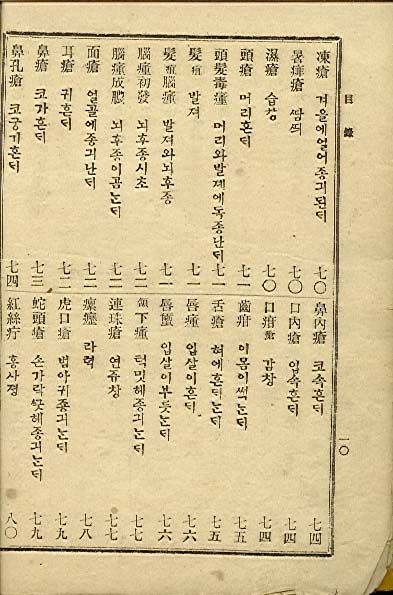 目錄
凍瘡 겨울에얼어종긔된ᄃᆡ 七〇
暑痱瘡 ᄯᅡᆷᄯᅴ 七〇
濕瘡 습창 七〇
頭瘡 머리흔ᄃᆡ 七一
頭髮毒瘇 머리와발졔에독종난ᄃᆡ 七一
髮瘇 발졔 七一
髮瘇腦瘇 발졔와뇌후종 七一
腦瘇初發 뇌후종시초 七二
腦瘇成膿 뇌후종이곰는ᄃᆡ 七二
面瘡 얼골에종긔난ᄃᆡ 七二
耳瘡 귀흔ᄃᆡ 七二
鼻瘡 코가흔ᄃᆡ 七三
鼻孔瘡 코궁기흔ᄃᆡ 七四
鼻內瘡 코속흔ᄃᆡ 七四
口內瘡 입속흔ᄃᆡ 七四
口疳瘡 감창 七四
齒疳 이몸이썩는ᄃᆡ 七五
舌瘡 혀에흔ᄃᆡ는ᄃᆡ 七五
唇瘇 입살이흔ᄃᆡ 七六
唇 입살이부릇는ᄃᆡ 七六
頷下瘇 턱밋헤종긔는ᄃᆡ 七七
連珠瘡 연쥬창 七七
瘰癧 라력 七八
虎口瘡 범아귀죵긔는ᄃᆡ 七九
蛇頭瘡 손가락ᄭᅳᆺ헤종긔는ᄃᆡ 七九
紅絲疔 홍사졍 八〇
一〇